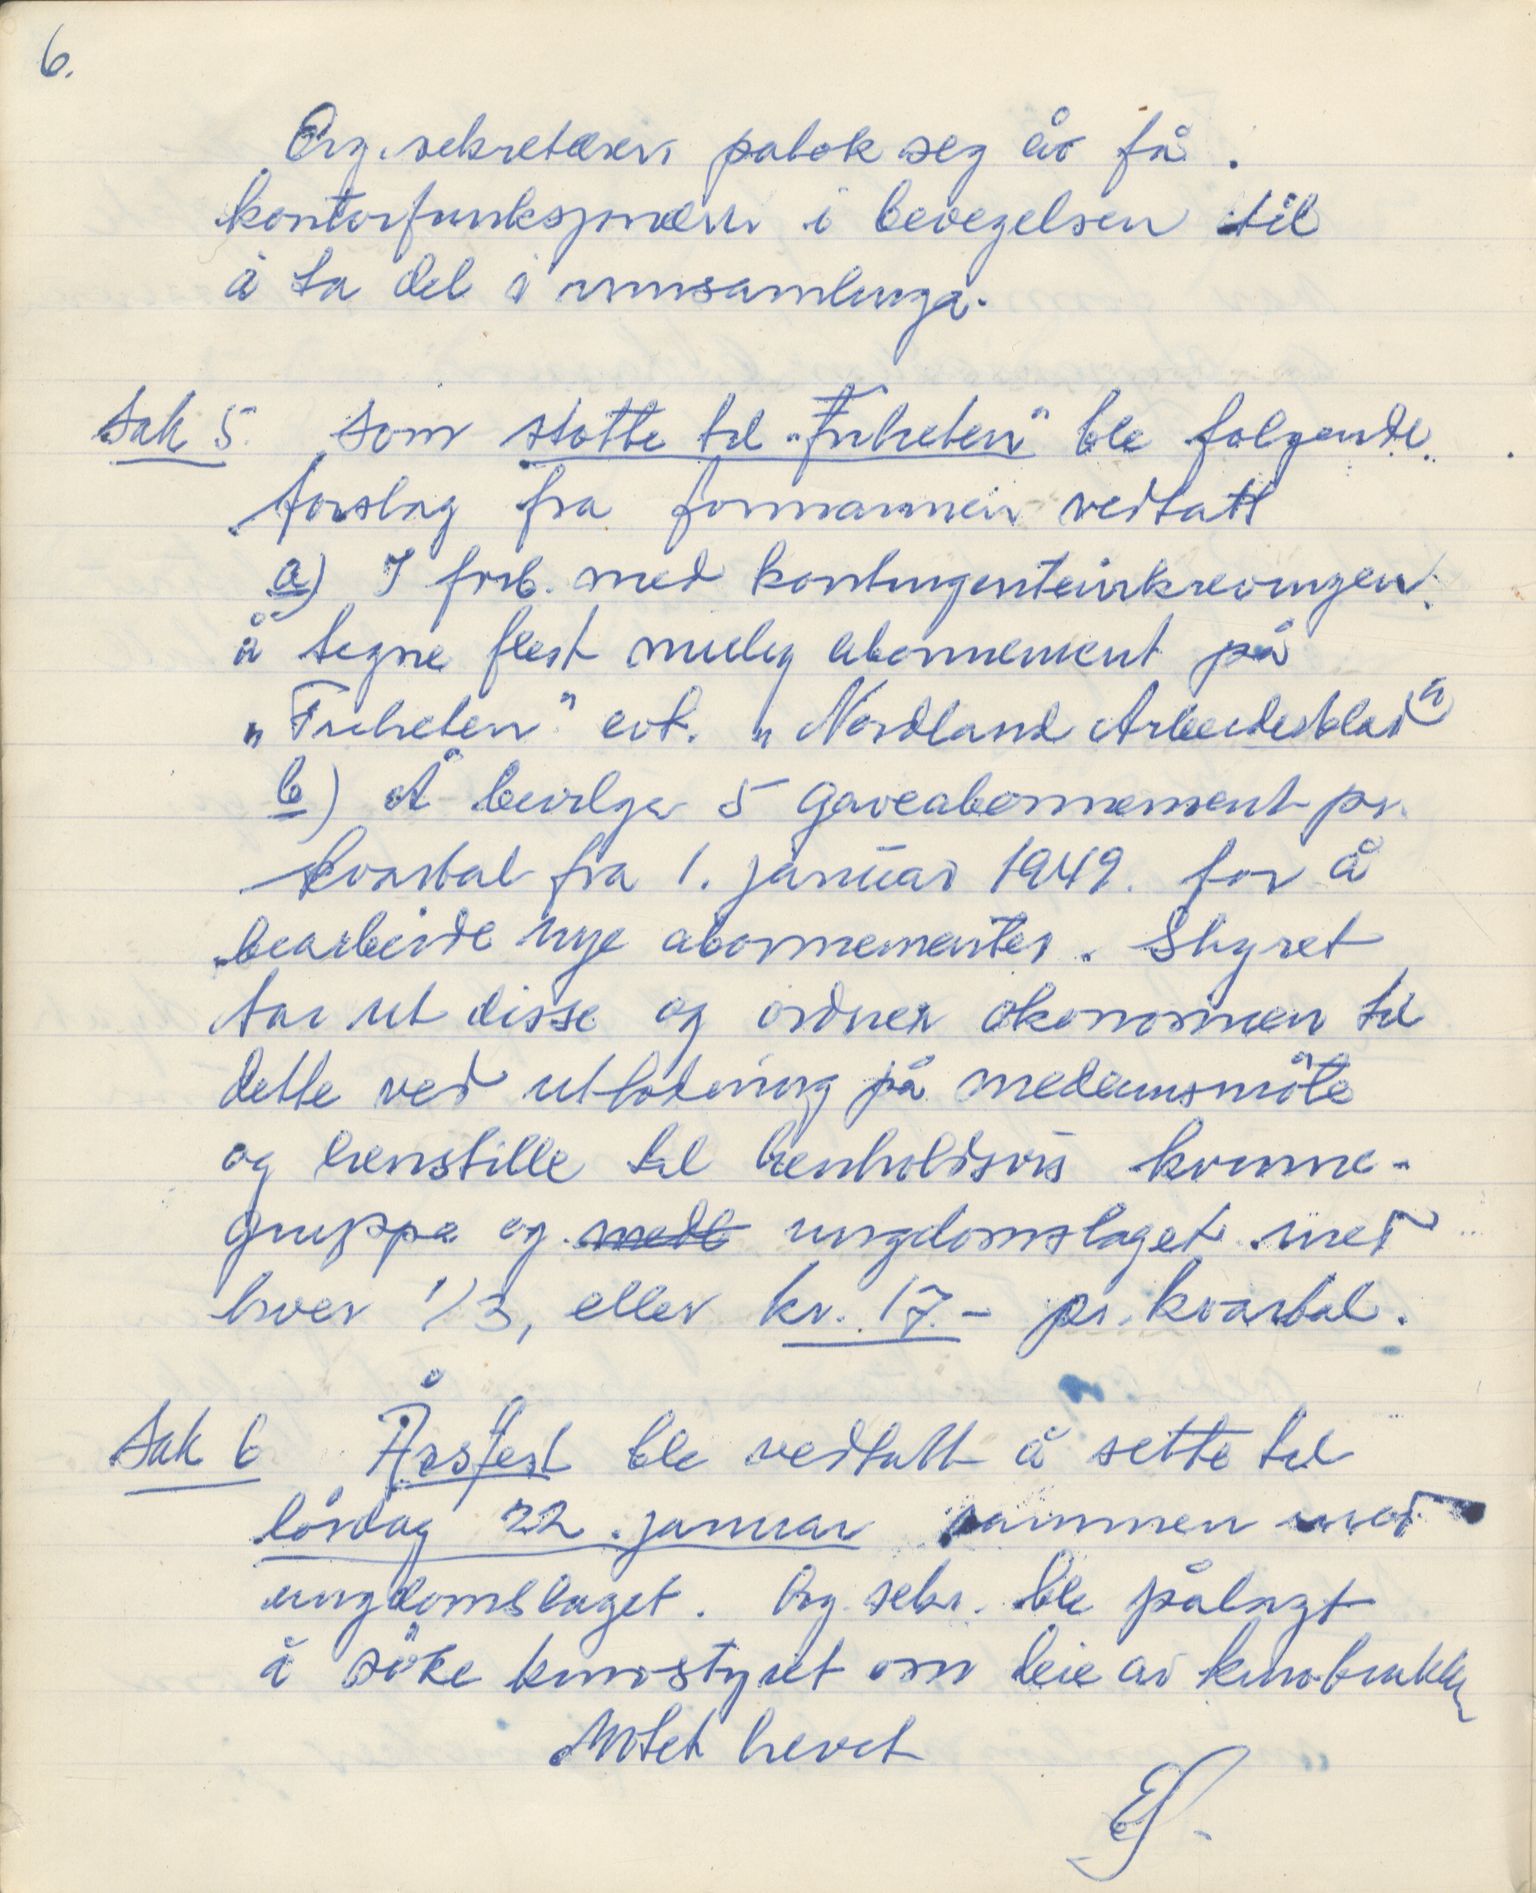 6.
Org. sekretæren påtok seg å få
kontorfunksjonærer i bevegelsen til
å ta del i innsamlinga.
Sak 5. Som støtte til "Friheten" ble følgende
forslag fra formannen vedtatt
a) I forb. med kontingentinnkrevingen
å tegne flest mulig abonnement på
"Friheten" evt. "Nordland Arbeiderblad"
b) Å bevilge 5 gaveabonnement pr.
kvartal fra 1. januar 1949. for å
bearbeide nye abonnementer. Styret
tar ut disse og ordner økonomien til
dette ved utlodning på medlemsmöte
og henstille til henholdsvis kvinne-
gruppa og medl ungdomslaget med
hver 1/3, eller kr. 17.- pr. kvartal.
Sak 6 Årsfest ble vedtatt å sette til
lördag 22. januar sammen med
ungdomslaget. Org. sekr. ble pålagt
å söke kinostyret om leie av kino-brakka
Møtet hevet